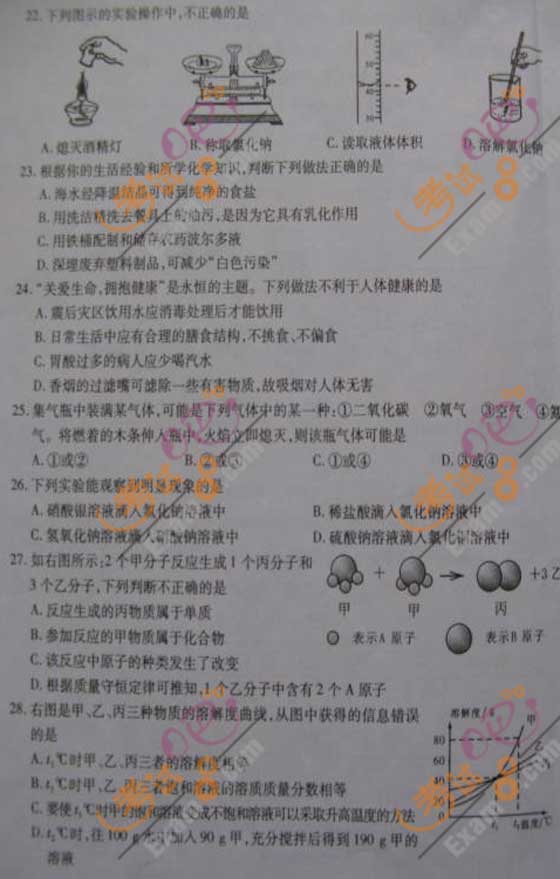 22. 下列图示的实验操作中,不正确的是
A. 熄灭酒精灯 B. 称取氯化钠 C. 读取液体体积 D. 溶解氯化钠
23. 根据你的生活经验和所学化学知识,判断下列做法正确的是
A. 海水经降温结晶可得到纯净的食盐
B. 用洗洁精洗去餐具上的油污,是因为它具有乳化作用
C. 用铁桶配制和储存农药波尔多液
D. 深埋废弃塑料制品,可减少“白色污染”
24. “关爱生命,拥抱健康”是永恒的主题。下列做法不利于人体健康的是
A. 震后灾区饮用水应消毒处理后才能饮用
B. 日常生活中应有合理的膳食结构,不挑食、不偏食
C. 胃酸过多的病人应少喝汽水
D. 香烟的过滤嘴可滤除一些有害物质,故吸烟对人体无害
25. 集气瓶中装满某气体,可能是下列气体中的某一种:①二氧化碳 ②氧气 ③空气 ④氮
气。将燃着的木条伸入瓶中,火焰立即熄灭,则该瓶气体可能是
A. ①或② B. ②或③ C. ①或④ D. ③或④
26. 下列实验能观察到明显现象的是
A. 硝酸银溶液滴入氯化钠溶液中 B. 稀盐酸滴入氯化钠溶液中
C. 氢氧化钠溶液滴入硝酸钠溶液中 D. 硫酸钠溶液滴入氯化铜溶液中
27. 如右图所示:2个甲分子反应生成1个丙分子和
3个乙分子,下列判断不正确的是
A. 反应生成的丙物质属于单质
B. 参加反应的甲物质属于化合物
C. 该反应中原子的种类发生了改变
D. 根据质量守恒定律可推知,1个乙分子中含有2个A原子
+ +3乙
甲 甲 丙
表示A原子 表示B原子
28. 右图是甲、乙、丙三种物质的溶解度曲线,从图中获得的信息错误
的是
A. t₁℃时甲、乙、丙三者的溶解度相等
B. t₁℃时甲、乙、丙三者饱和溶液的溶质质量分数相等
C. 要使t₁℃时甲的饱和溶液变成不饱和溶液可以采取升高温度的方法
D. t₂℃时,往100 g水中加入90 g甲,充分搅拌后得到190 g甲的
溶液
溶解度/g
甲
乙
80
60
40
20
0
t₁ t₂ 温度/℃
考试
Exam8.com